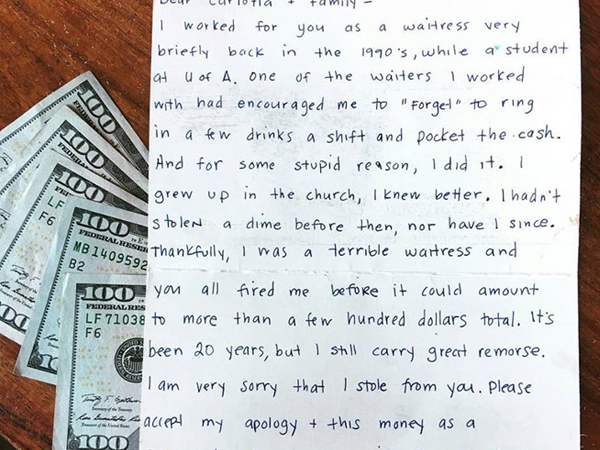 Dear Carlotta + family -
I worked for you as a waitress very
briefly back in the 1990's, while a student
at U of A. One of the waiters I worked
with had encouraged me to "forget" to ring
in a few drinks a shift and pocket the cash.
And for some stupid reason, I did it. I
grew up in the church, I knew better. I hadn't
stolen a dime before then, nor have I since.
Thankfully, I was a terrible waitress and
you all fired me before it could amount
to more than a few hundred dollars total. It's
been 20 years, but I still carry great remorse.
I am very sorry that I stole from you. Please
accept my apology + this money as a
100
100
100
LF
F6
100
FEDERAL RESER
MB 1409592
B2
100
FEDERAL RES
LF 71038
F6
100